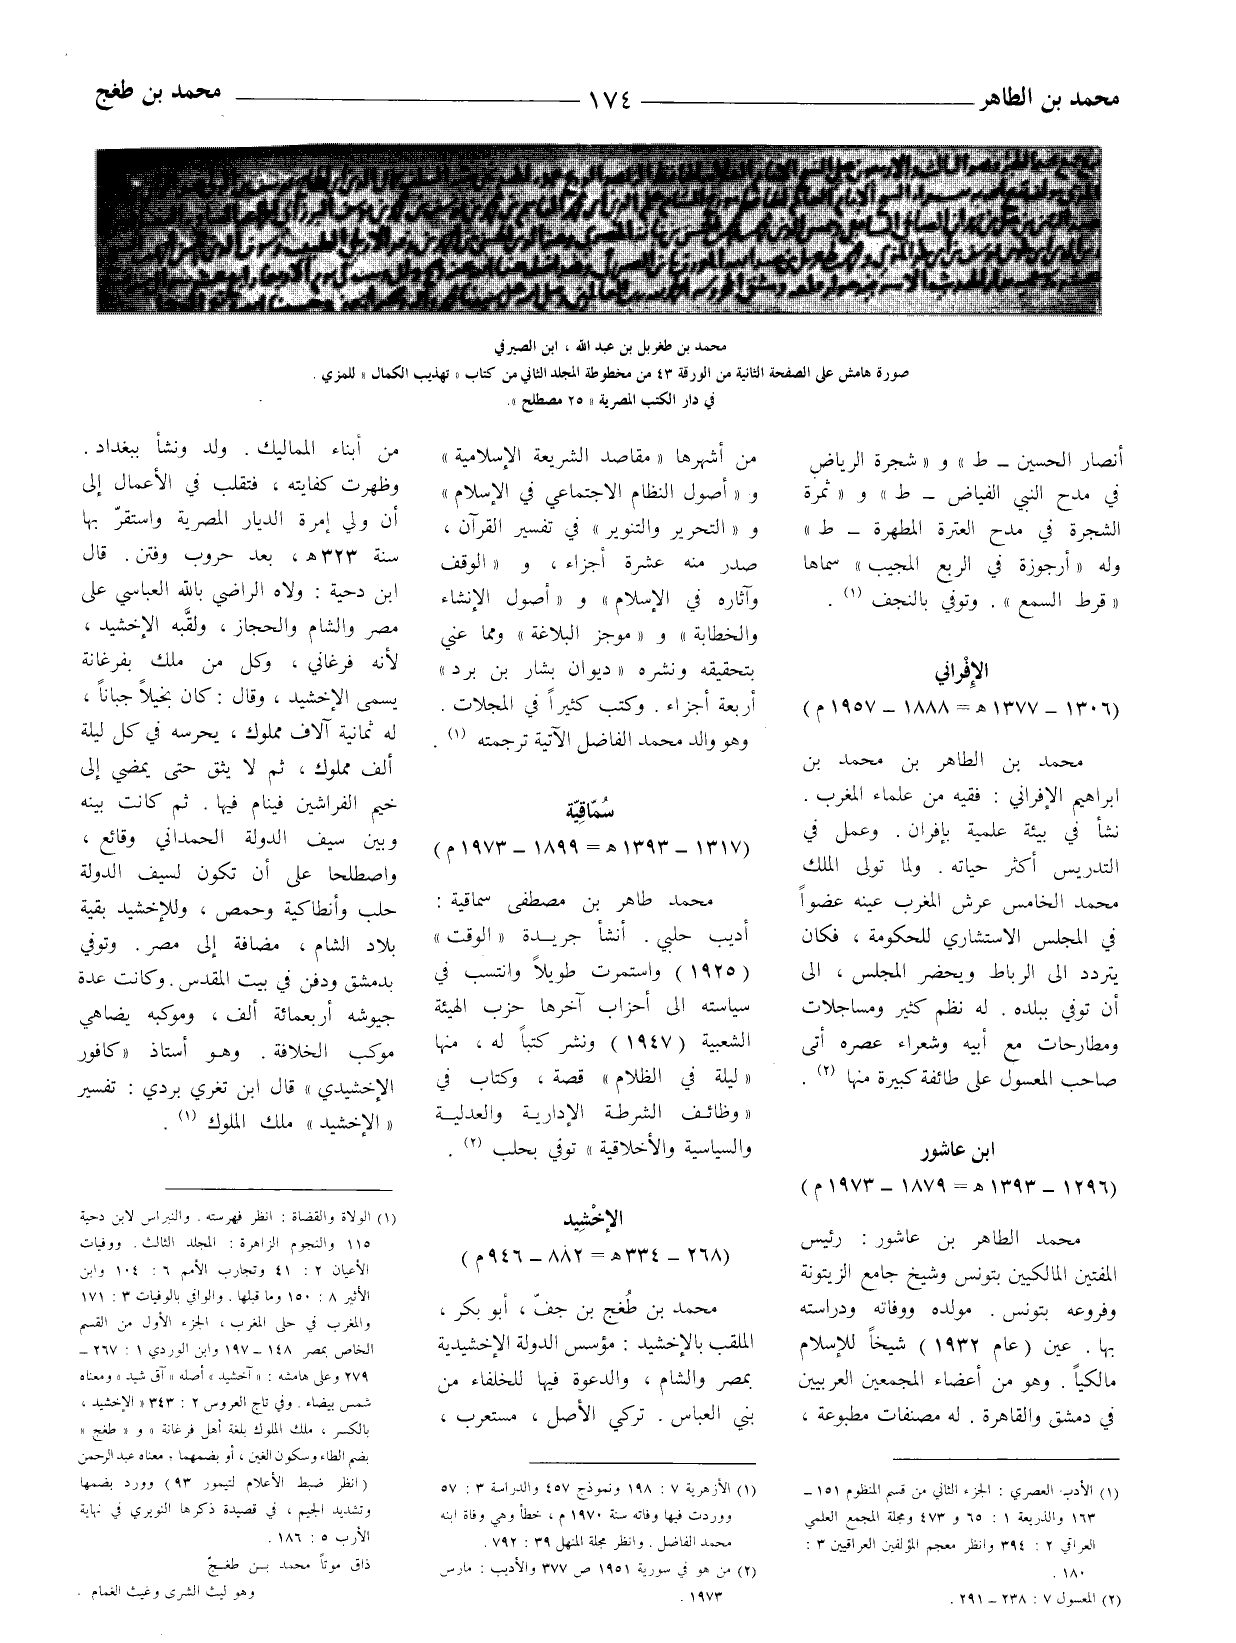 محمد بن الطاهر ـــ ١٧٤ ـــ محمد بن طغج
محمد بن طغربل بن عبد الله ، ابن الصيرفي
صورة هامش على الصفحة الثانية من الورقة ٤٣ من مخطوطة المجلد الثاني من كتاب « تهذيب الكمال » للمزي .
في دار الكتب المصرية « ٢٥ مصطلح ».
أنصار الحسين ـ ط » و « شجرة الرياض
في مدح النبي الفياض ـ ط » و « ثمرة
الشجرة في مدح العترة المطهرة ـ ط »
وله « أرجوزة في الربع المجيب » سماها
« قرط السمع » . وتوفي بالنجف (١) .
الإفْراني
(١٣٠٦ ـ ١٣٧٧ هـ = ١٨٨٨ ـ ١٩٥٧ م)
محمد بن الطاهر بن محمد بن
ابراهيم الإفراني : فقيه من علماء المغرب .
نشأ في بيئة علمية بإفران . وعمل في
التدريس أكثر حياته . ولما تولى الملك
محمد الخامس عرش المغرب عينه عضواً
في المجلس الاستشاري للحكومة ، فكان
يتردد الى الرباط ويحضر المجلس ، الى
أن توفي ببلده . له نظم كثير ومساجلات
ومطارحات مع أبيه وشعراء عصره أتى
صاحب المعسول على طائفة كبيرة منها (٢) .
ابن عاشور
(١٢٩٦ ـ ١٣٩٣ هـ = ١٨٧٩ ـ ١٩٧٣ م)
محمد الطاهر بن عاشور : رئيس
المفتين المالكيين بتونس وشيخ جامع الزيتونة
وفروعه بتونس . مولده ووفاته ودراسته
بها . عين (عام ١٩٣٢) شيخاً للإسلام
مالكياً . وهو من أعضاء المجمعين العربيين
في دمشق والقاهرة . له مصنفات مطبوعة ،
(١) الأدب العصري : الجزء الثاني من قسم المنظوم ١٥١ ـ
١٦٣ والذريعة ١ : ٦٥ و ٤٧٣ ومجلة المجمع العلمي
العراقي ٢ : ٣٩٤ وانظر معجم المؤلفين العراقيين ٣ :
١٨٠ .
(٢) المعسول ٧ : ٢٣٨ ـ ٢٩١ .
من أشهرها « مقاصد الشريعة الإسلامية »
و « أصول النظام الاجتماعي في الإسلام »
و « التحرير والتنوير » في تفسير القرآن ،
صدر منه عشرة أجزاء ، و « الوقف
وآثاره في الإسلام » و « أصول الإنشاء
والخطابة » و « موجز البلاغة » ومما عني
بتحقيقه ونشره « ديوان بشار بن برد »
أربعة أجزاء . وكتب كثيراً في المجلات .
وهو والد محمد الفاضل الآتية ترجمته (١) .
سُمّاقِيّة
(١٣١٧ ـ ١٣٩٣ هـ = ١٨٩٩ ـ ١٩٧٣ م)
محمد طاهر بن مصطفى سماقية :
أديب حلبي . أنشأ جريدة « الوقت »
(١٩٢٥) واستمرت طويلاً وانتسب في
سياسته الى أحزاب آخرها حزب الهيئة
الشعبية (١٩٤٧) ونشر كتباً له ، منها
« ليلة في الظلام » قصة ، وكتاب في
« وظائف الشرطة الإدارية والعدلية
والسياسية والأخلاقية » توفي بحلب (٢) .
الإخْشِيد
(٢٦٨ ـ ٣٣٤هـ = ٨٨٢ ـ ٩٤٦م)
محمد بن طُغج بن جفّ ، أبو بكر ،
الملقب بالإخشيد : مؤسس الدولة الإخشيدية
بمصر والشام ، والدعوة فيها للخلفاء من
بني العباس . تركي الأصل ، مستعرب ،
(١) الأزهرية ٧ : ١٩٨ ونموذج ٤٥٧ والدراسة ٣ : ٥٧
ووردت فيها وفاته سنة ١٩٧٠ م ، خطأ وهي وفاة ابنه
محمد الفاضل . وانظر مجلة المنهل ٣٩ : ٧٩٢ .
(٢) من هو في سورية ١٩٥١ ص ٣٧٧ والأديب : مارس
١٩٧٣ .
من أبناء المماليك . ولد ونشأ ببغداد .
وظهرت كفايته ، فتقلب في الأعمال إلى
أن ولي إمرة الديار المصرية واستقرّ بها
سنة ٣٢٣هـ ، بعد حروب وفتن . قال
ابن دحية : ولاه الراضي بالله العباسي على
مصر والشام والحجاز ، ولقَّبه الإخشيد ،
لأنه فرغاني ، وكل من ملك بفرغانة
يسمى الإخشيد ، وقال : كان بخيلاً جباناً ،
له ثمانية آلاف مملوك ، يحرسه في كل ليلة
ألف مملوك ، ثم لا يثق حتى يمضي إلى
خيم الفراشين فينام فيها . ثم كانت بينه
وبين سيف الدولة الحمداني وقائع ،
واصطلحا على أن تكون لسيف الدولة
حلب وأنطاكية وحمص ، وللإخشيد بقية
بلاد الشام ، مضافة إلى مصر . وتوفي
بدمشق ودفن في بيت المقدس . وكانت عدة
جيوشه أربعمائة ألف ، وموكبه يضاهي
موكب الخلافة . وهو أستاذ « كافور
الإخشيدي » قال ابن تغري بردي : تفسير
« الإخشيد » ملك الملوك (١) .
(١) الولاة والقضاة : انظر فهرسته . والنبراس لابن دحية
١١٥ والنجوم الزاهرة : المجلد الثالث . ووفيات
الأعيان ٢ : ٤١ وتجارب الأمم ٦ : ١٠٤ وابن
الأثير ٨ : ١٥٠ وما قبلها . والوافي بالوفيات ٣ : ١٧١
والمغرب في حلى المغرب ، الجزء الأول من القسم
الخاص بمصر ١٤٨ ـ ١٩٧ وابن الوردي ١ : ٢٦٧ ـ
٢٧٩ وعلى هامشه : « آخشيد » أصله « آق شيد » ومعناه
شمس بيضاء . وفي تاج العروس ٢ : ٣٤٣ « الإخشيد ،
بالكسر ، ملك الملوك بلغة أهل فرغانة » و « طغج »
بضم الطاء وسكون الغين ، أو بضمهما ، معناه عبد الرحمن
(انظر ضبط الأعلام لتيمور ٩٣) وورد بضمها
وتشديد الجيم ، في قصيدة ذكرها النويري في نهاية
الأرب ٥ : ١٨٦ .
ذاق موتاً محمد بن طغجّ
وهو ليث الشرى وغيث الغمام .